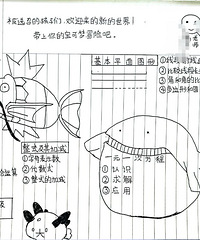 被选召的孩子们:欢迎来的新的世界!
带上你的宝可梦冒险吧.
基本平面图形
①线段
②比较线段
③角和角的
④多边形和圆
整式及其加减
①字母表示数
②代数式
③整式的加减
一元一次方程
①认识
②求解
③应用